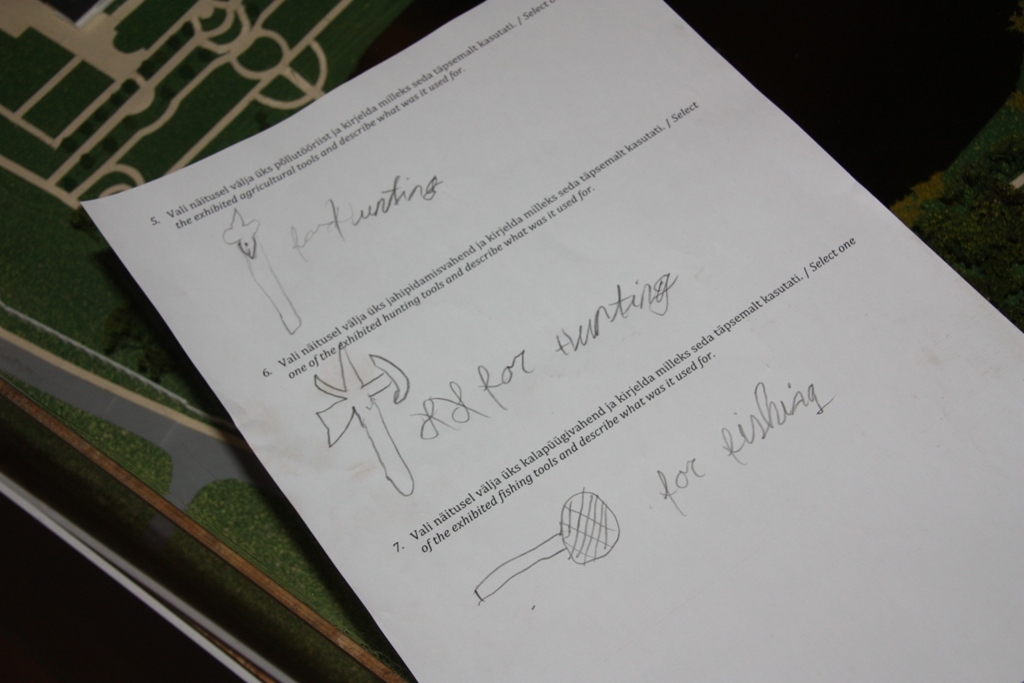 5. Vali näitusel välja üks põllutööriist ja kirjelda milleks seda täpsemalt kasutati. / Select
the exhibited agricultural tools and describe what was it used for.
for Hunting
6. Vali näitusel välja üks jahipidamisvahend ja kirjelda milleks seda täpsemalt kasutati. / Select
one of the exhibited hunting tools and describe what was it used for.
for Hunting
7. Vali näitusel välja üks kalapüügivahend ja kirjelda milleks seda täpsemalt kasutati. / Select one
of the exhibited fishing tools and describe what was it used for.
for fishing